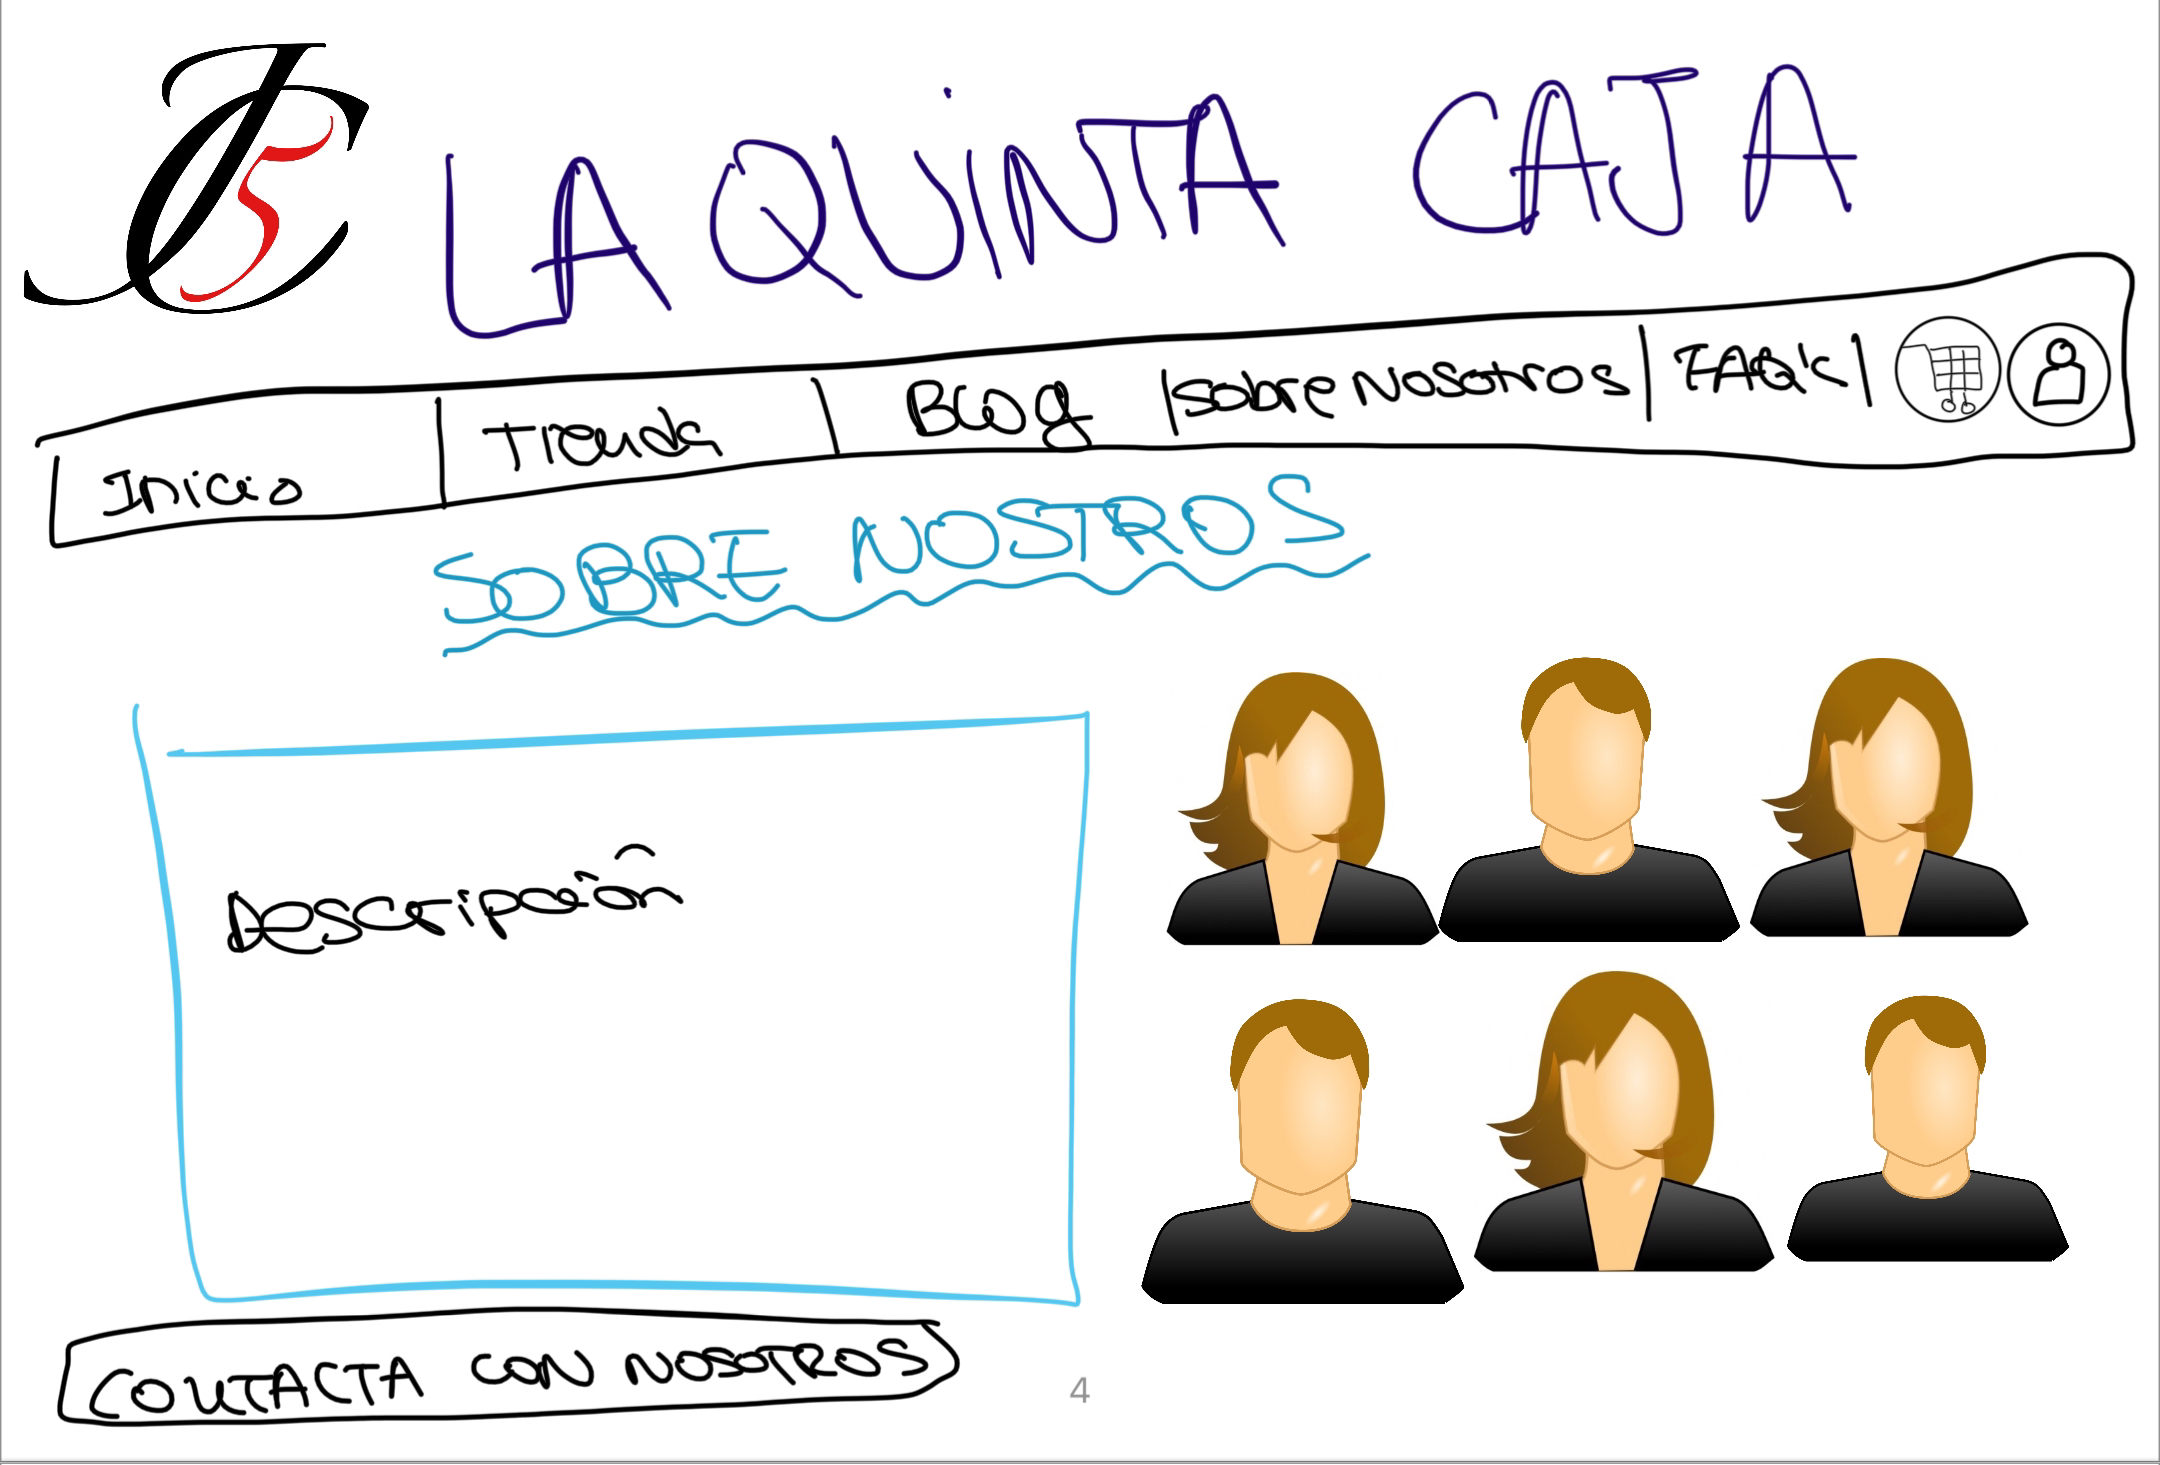 LA QUINTA CAJA
Inicio | Tienda | Blog | Sobre Nosotros | FAQ's |
SOBRE NOSTROS
Descripción
CONTACTA CON NOSOTROS
4